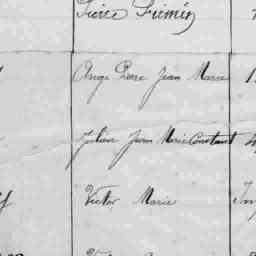 Pierre Firmin
Ange Pierre Jean Marie
Julien Jean Marie Constant
Victor Marie